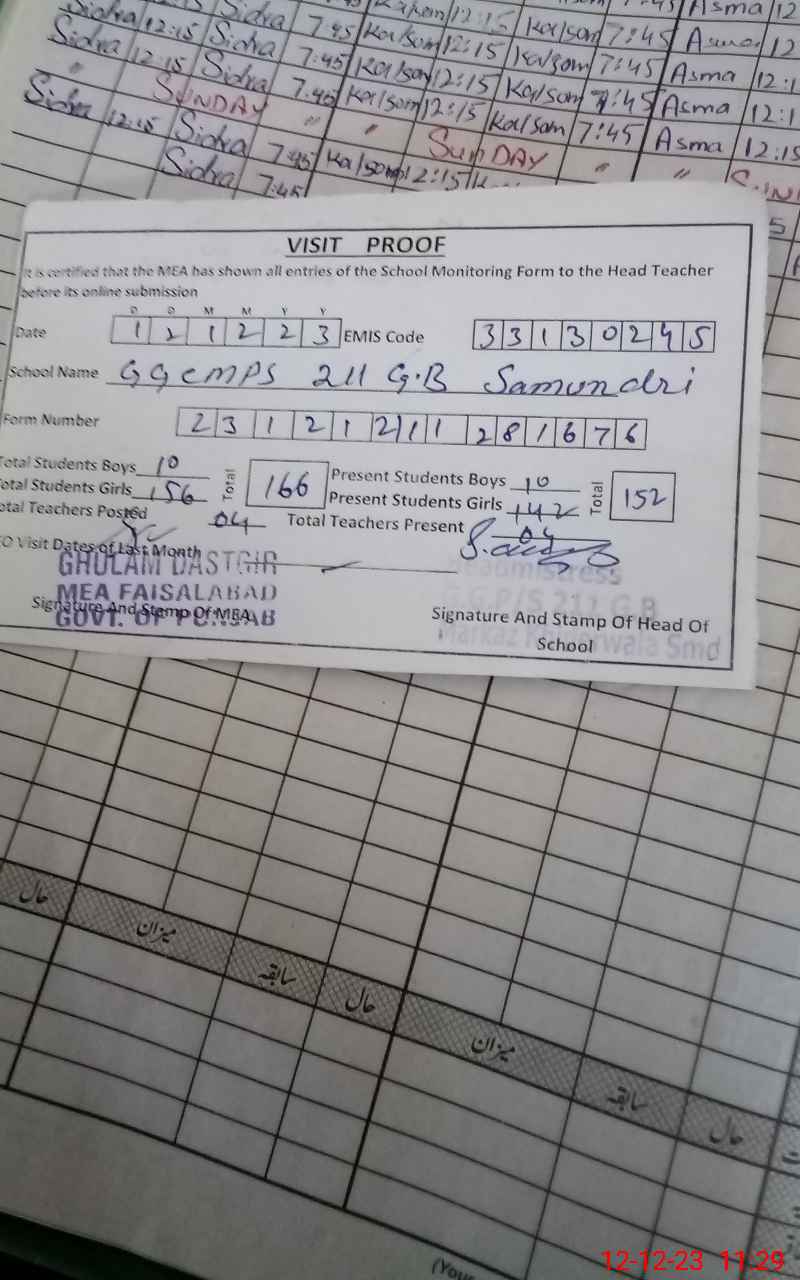 Sidra 12:15 Sidra 7:45 Kalsom 12:15 Kalsom 7:45 Asma 12
Sidra 12:15 Sidra 7:45 Kalsom 12:15 Kalsom 7:45 Asma 12
" 12:15 Sidra 7:45 Kalsom 12:15 Kalsom 7:45 Asma 12:1
SUNDAY 7:45 Kalsom 12:15 Kalsom 7:45 Asma 12:1
Sidra 12:15 Sidra " " SUNDAY Kalsom 7:45 Asma 12:15
Sidra 7:45 Kalsom 12:15 " "
7:45
VISIT PROOF
It is certified that the MEA has shown all entries of the School Monitoring Form to the Head Teacher
before its online submission
D D M M Y Y
Date 1 2 1 2 2 3 EMIS Code 3 3 1 3 0 2 4 5
School Name GGCMPS 211 G.B Samundri
Form Number 2 3 1 2 1 2 1 1 2 8 1 6 7 6
Total Students Boys 10 Total 166 Present Students Boys 10 Total 152
Total Students Girls 156 Present Students Girls 142
Total Teachers Posted 04 Total Teachers Present 04
O Visit Dates of Last Month
GHULAM DASTGIR
MEA FAISALABAD
GOVT. OF PUNJAB
Signature And Stamp Of MEA
Headmistress
G.G.P/S 211 G.B
Signature And Stamp Of Head Of
School
حال میزان سابقہ حال میزان سابقہ حال
(You
12-12-23 11:29